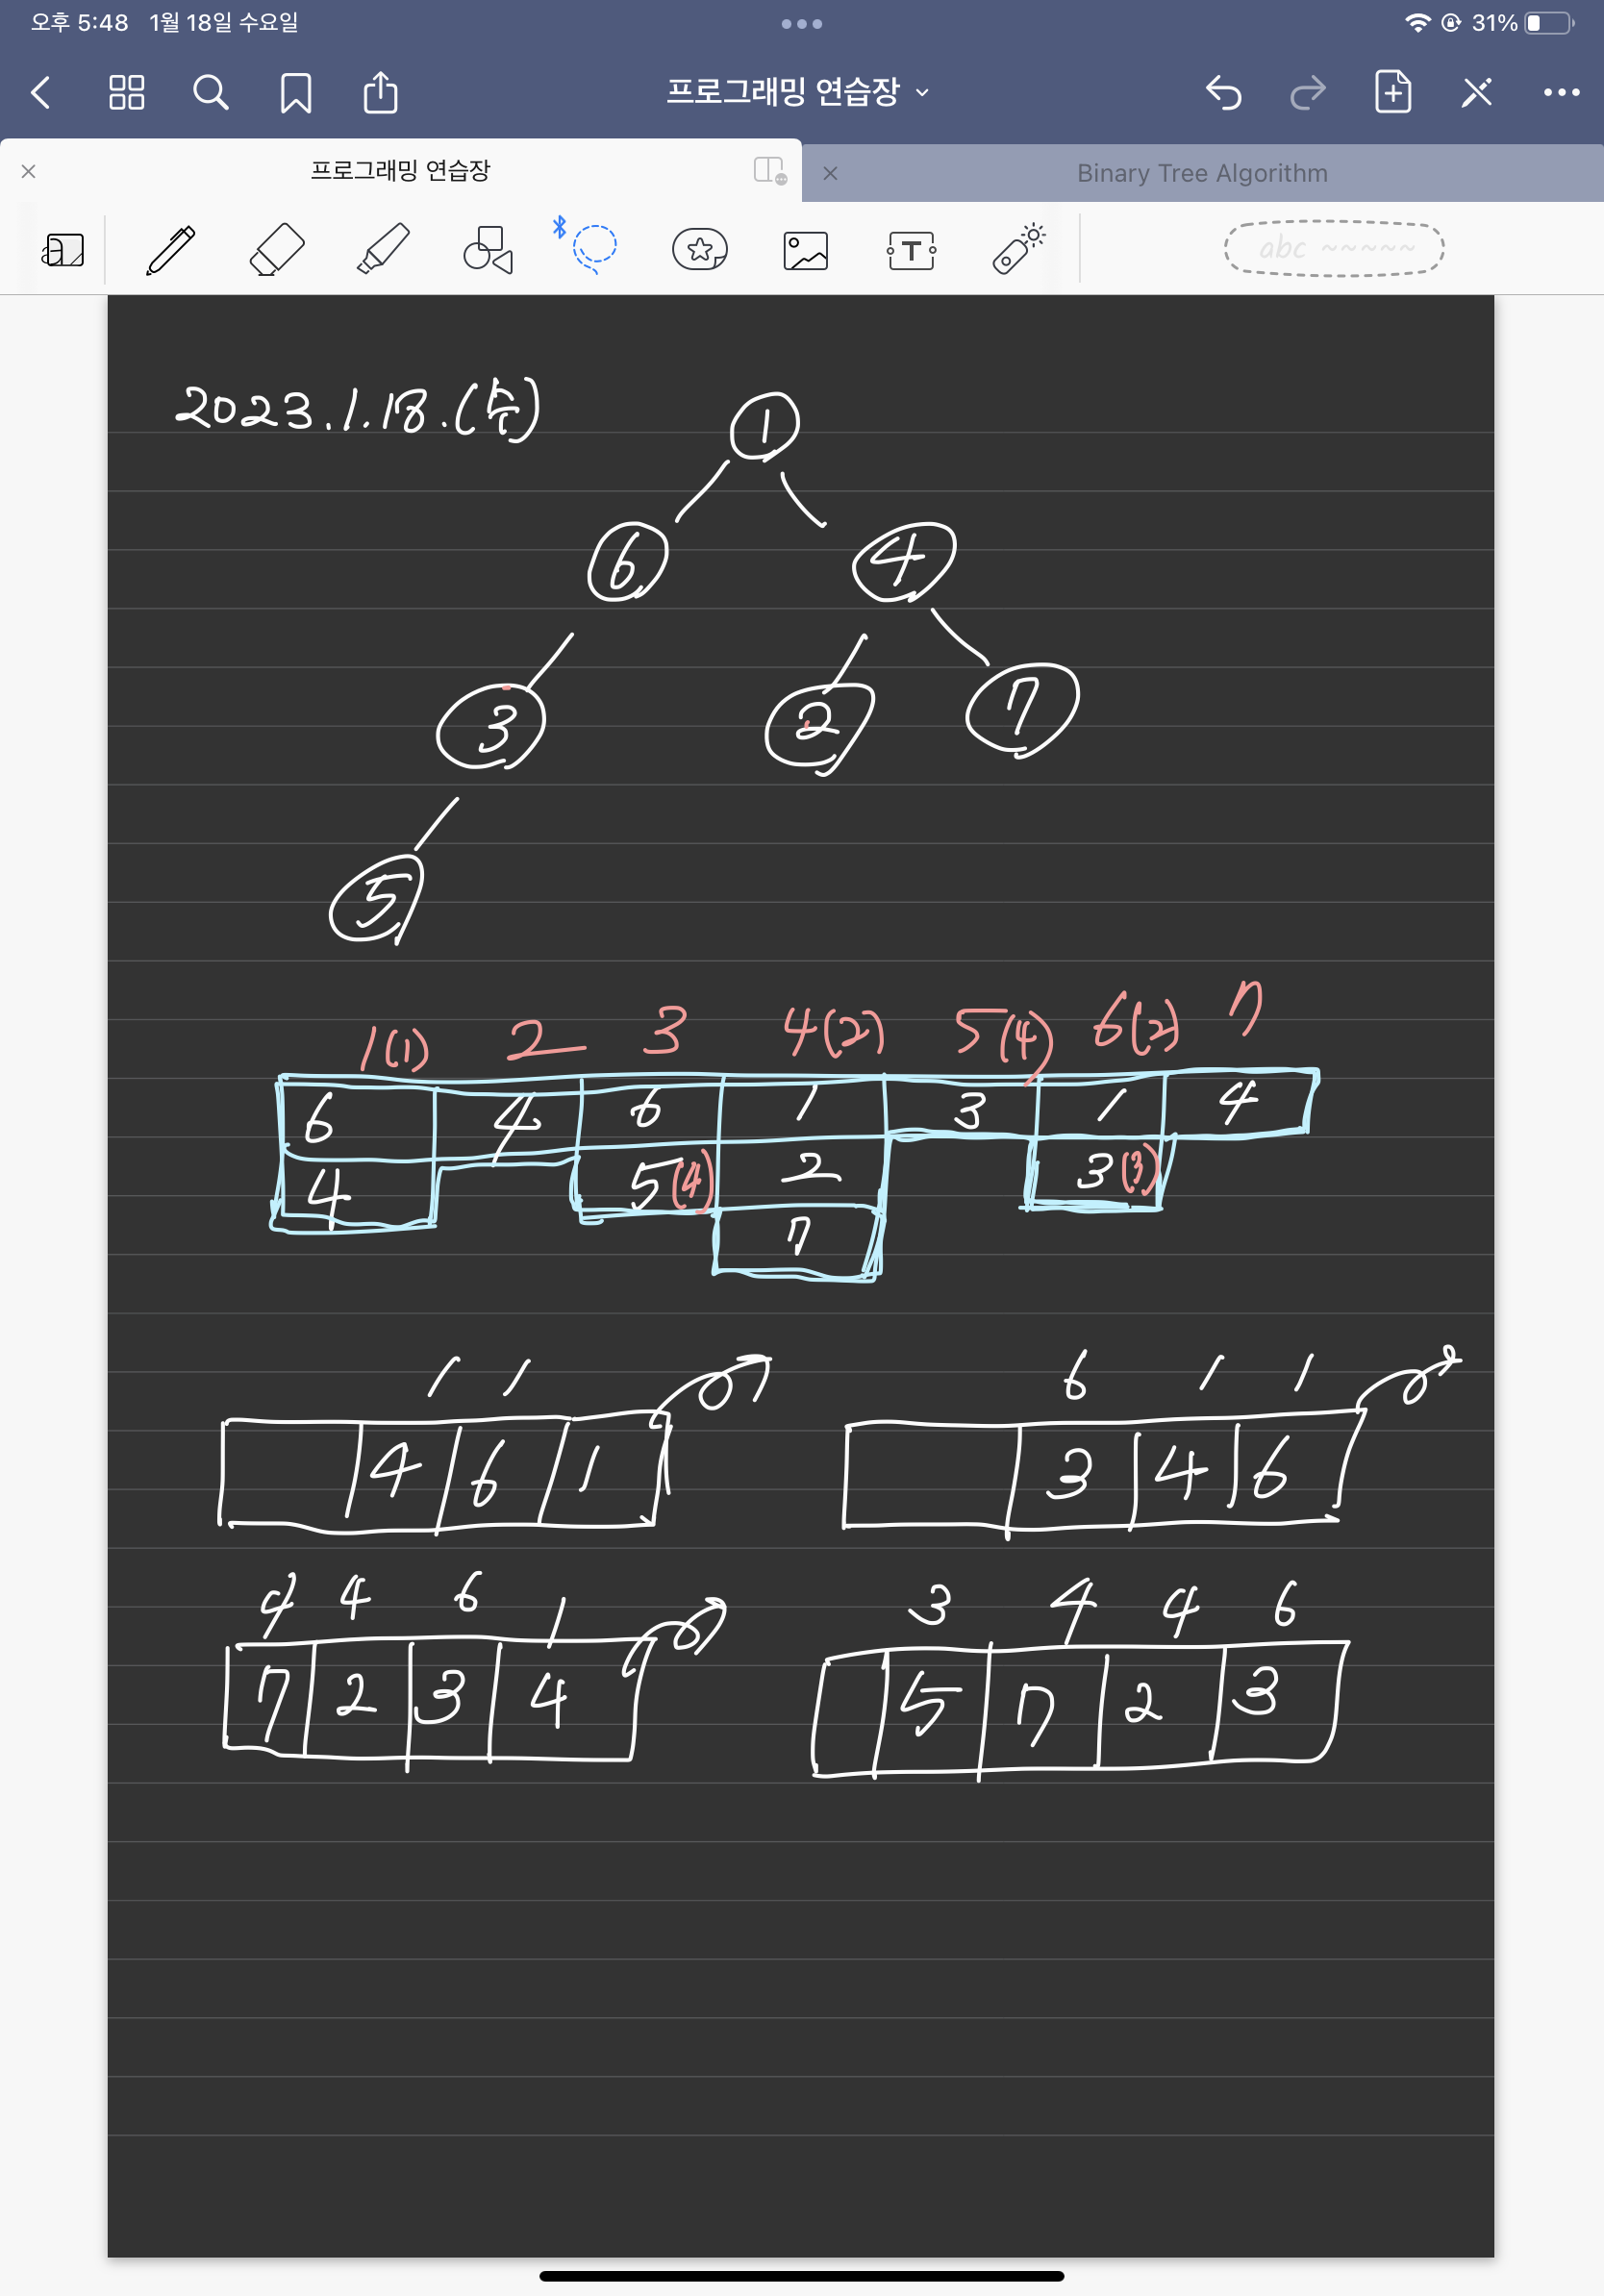 오후 5:48 1월 18일 수요일
31%
프로그래밍 연습장
프로그래밍 연습장
Binary Tree Algorithm
T
abc ~~~~~
2023.1.18.(수)
1
6 4
3 2 7
5
1(1) 2 3 4(2) 5(4) 6(2) 7
6 4 6 1 3 1 4
4 5(4) 2 3(3)
7
1 1
4 6 1
6 1 1
3 4 6
4 4 6 1
7 2 3 4
3 4 4 6
5 7 2 3